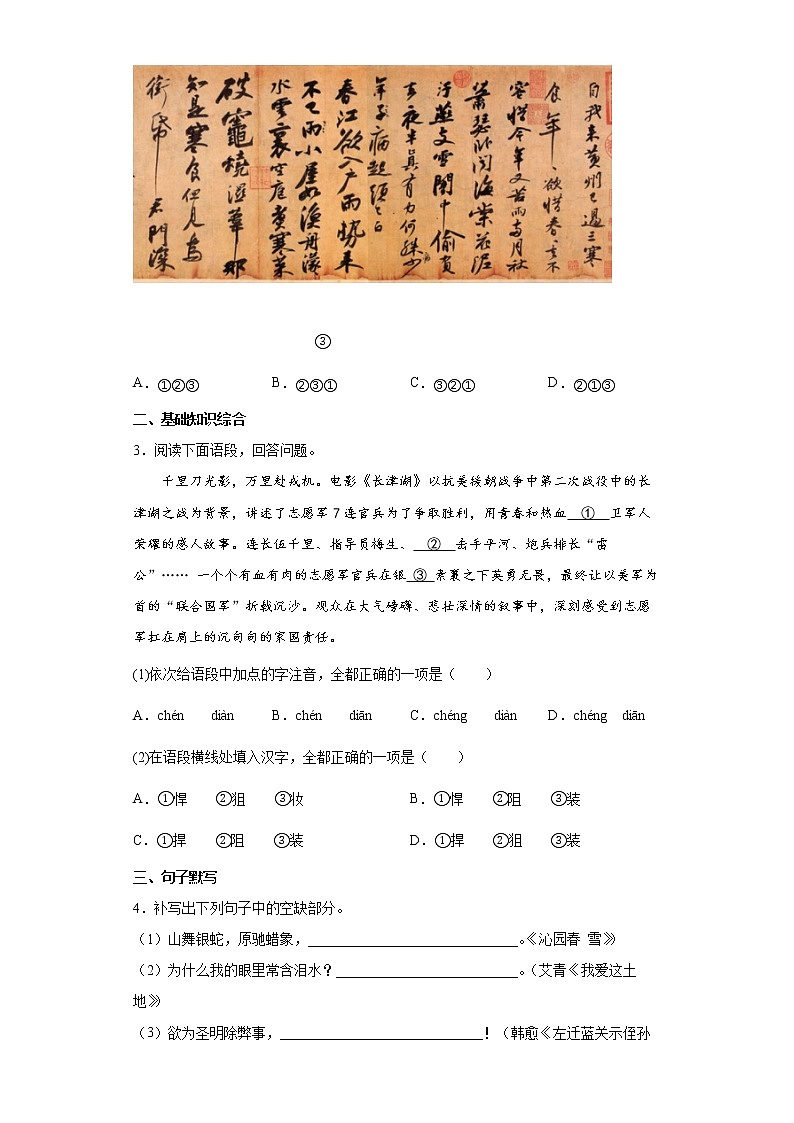 自我来黄州已過三寒
食年、欲惜春、去不
容惜今年又苦雨兩月秋
蕭瑟卧聞海棠花泥
汙燕支雪闇中偷負
去夜半真有力何殊少
年子病起頭已白
春江欲入户雨勢来
不已雨小屋如漁舟濛
水雲裏空庖煑寒菜
破竈燒濕葦那
知是寒食但見烏
銜帋君門深
③
A．①②③ B．②③① C．③②① D．②①③
二、基础知识综合
3．阅读下面语段，回答问题。
千里刀光影，万里赴戎机。电影《长津湖》以抗美援朝战争中第二次战役中的长
津湖之战为背景，讲述了志愿军7连官兵为了争取胜利，用青春和热血 ① 卫军人
荣耀的感人故事。连长伍千里、指导员梅生、 ② 击手平河、炮兵排长“雷
公”…… 一个个有血有肉的志愿军官兵在银 ③ 素裹之下英勇无畏，最终让以美军为
首的“联合国军”折戟沉沙。观众在大气磅礴、悲壮深情的叙事中，深刻感受到志愿
军扛在肩上的沉甸甸的家国责任。
(1)依次给语段中加点的字注音，全都正确的一项是（　　）
A．chén diàn B．chén diān C．chéng diàn D．chéng diān
(2)在语段横线处填入汉字，全都正确的一项是（　　）
A．①悍 ②狙 ③妆 B．①悍 ②阻 ③装
C．①捍 ②阻 ③装 D．①捍 ②狙 ③装
三、句子默写
4．补写出下列句子中的空缺部分。
（1）山舞银蛇，原驰蜡象，______________________________。《沁园春 雪》
（2）为什么我的眼里常含泪水？__________________________。（艾青《我爱这土
地》）
（3）欲为圣明除弊事，_____________________________！（韩愈《左迁蓝关示侄孙